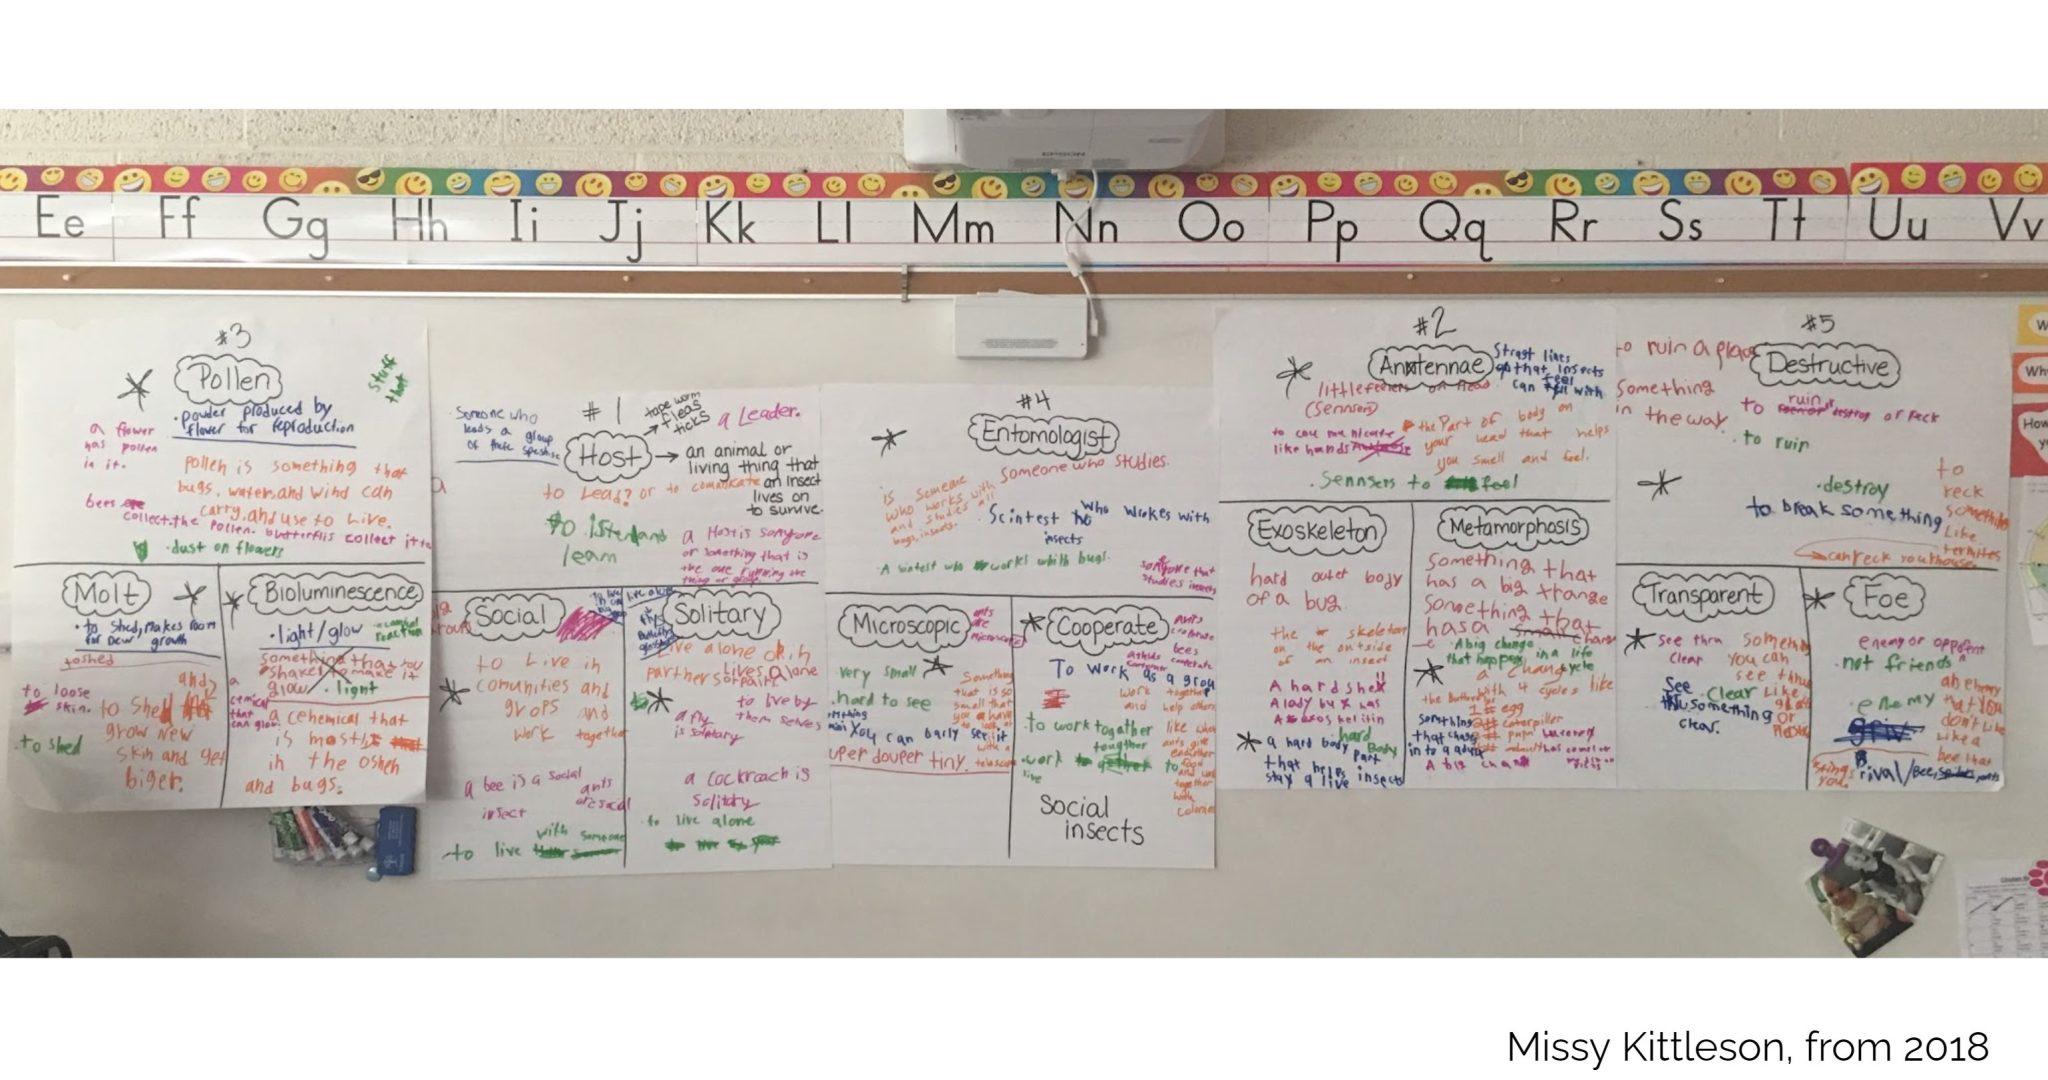 Ee Ff Gg Hh Ii Jj Kk Ll Mm Nn Oo Pp Qq Rr Ss Tt Uu Vv
EPSON
#3
Pollen
stuff
that
powder produced by
flower for reproduction
a flower
has pollen
in it.
Pollen is something that
bugs, water, and wind can
carry, and use to Live.
bees
collect the pollen. butterflis collect it
dust on flowers
Molt
to shed, makes room
for new growth
to shed
to loose
skin.
to shed
grow new
skin and get
biger.
to shed
Bioluminescence
light/glow
something that you
shake to make it
glow
light
cemical
that
can glow
a cehemical that
is mostly
in the oshen
and bugs.
#1
Host
tape worm
fleas
ticks
a Leader.
Someone who
leads a group
of there
an animal or
living thing that
an insect
lives on
to survive.
to Lead? or to comunkate
to listen and
learn
a Host is somyone
or something that is
the one running the
thing or group
Social
to Live in
comunities and
grops and
work together
a bee is a social
insect
ants
are social
to live
with someone
Solitary
live alone or in
partners or pairs
Lives alone
to live by
them selves
a fly
is solitary
a cockroach is
Solitary
to live alone
#4
Entomologist
Someone who studies.
is Someone
who works with
and studies all
bugs, insects.
Scintest who wrokes with
insects
A sintest who works whith bugs.
somyone that
studies insects
Microscopic
ants
are
microscopic
very small
hard to see
You can barly see it
uper douper tiny.
Something
that is so
small that
you have
to look at
it
with a
telescope
Cooperate
ants
cooperate
bees
cooperate
To work as a grou
work together
and help others
to work together
work together to
live
like when
ants give
eachother
food
and work
together
with
colonies
Social
insects
#2
Antennae
Straght lines
that insects
can feel with
little feelers on head
(Sensers)
to comunicate
like hands
the Part of body on
your head that helps
you smell and feel.
Sennsers to feel
Exoskeleton
hard outer body
of a bug.
the skeleton
on the outside
of an insect
A hard shell
A lady bug has
a hard body Part
that helps insects
stay a live
hard
Body
Metamorphosis
something that
has a big change
something that
has a
A big change in a life
that happens
a change cycle
the Butterfly with 4 cycles like
1# egg
2# caterpiller
something
that changes
in to a adult
A big change
#5
Destructive
to ruin a place
Something
in the way
to ruin or destroy or reck
to ruin
destroy
to break something
to
reck
something
Like
termites
can reck your house.
Transparent
See thru
clear
something
you can
see thru
Like
glass
or
See
thru something
clear.
Clear
Foe
enemy or opponent
not friends
enemy
an enemy
that you
don't Like
Like a
bee that
stings
you.
rival/Bee,
Missy Kittleson, from 2018